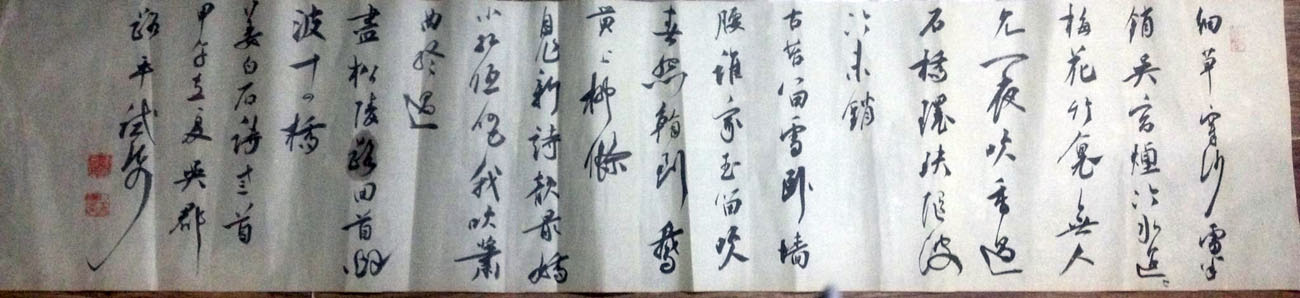 细草穿沙雪半
销吴宫烟冷水迢〻
梅花竹裏無人
见一夜吹香过
石橋環玦随波
冷未銷
古苔留雪卧墙
腰誰家玉笛吹
春怨看到鵝
黄上柳條
自作新詩韵最娇
小红低唱我吹箫
曲终过
盡松陵路回首烟
波十四橋
姜白石詩三首
甲午立夏吴郡
路平試笔